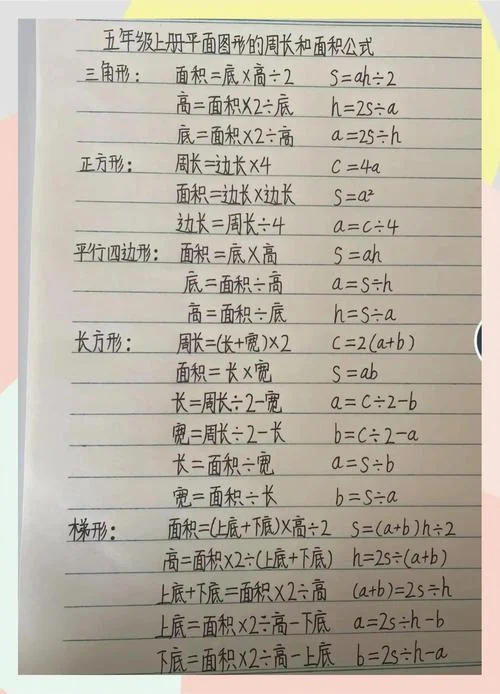 五年级上册平面图形的周长和面积公式
三角形： 面积=底×高÷2 S=ah÷2
高=面积×2÷底 h=2s÷a
底=面积×2÷高 a=2S÷h
正方形： 周长=边长×4 C=4a
面积=边长×边长 S=a²
边长=周长÷4 a=c÷4
平行四边形： 面积=底×高 S=ah
底=面积÷高 a=S÷h
高=面积÷底 h=S÷a
长方形： 周长=(长+宽)×2 C=2(a+b)
面积=长×宽 S=ab
长=周长÷2-宽 a=C÷2-b
宽=周长÷2-长 b=C÷2-a
长=面积÷宽 a=S÷b
宽=面积÷长 b=S÷a
梯形： 面积=(上底+下底)×高÷2 S=(a+b)h÷2
高=面积×2÷(上底+下底) h=2s÷(a+b)
上底+下底=面积×2÷高 (a+b)=2s÷h
上底=面积×2÷高-下底 a=2s÷h-b
下底=面积×2÷高-上底 b=2s÷h-a